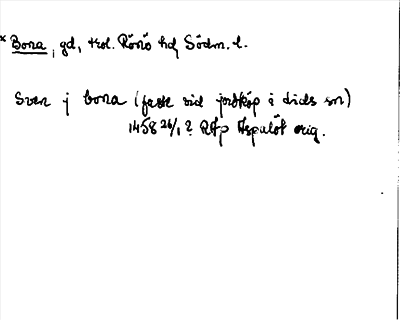 × Bona, gd, trol. Rönö hd Södm. l.
Sven j bona (faste vid jordköp i dids sn)
1458 26/1 ? RAp Aspalöt orig.